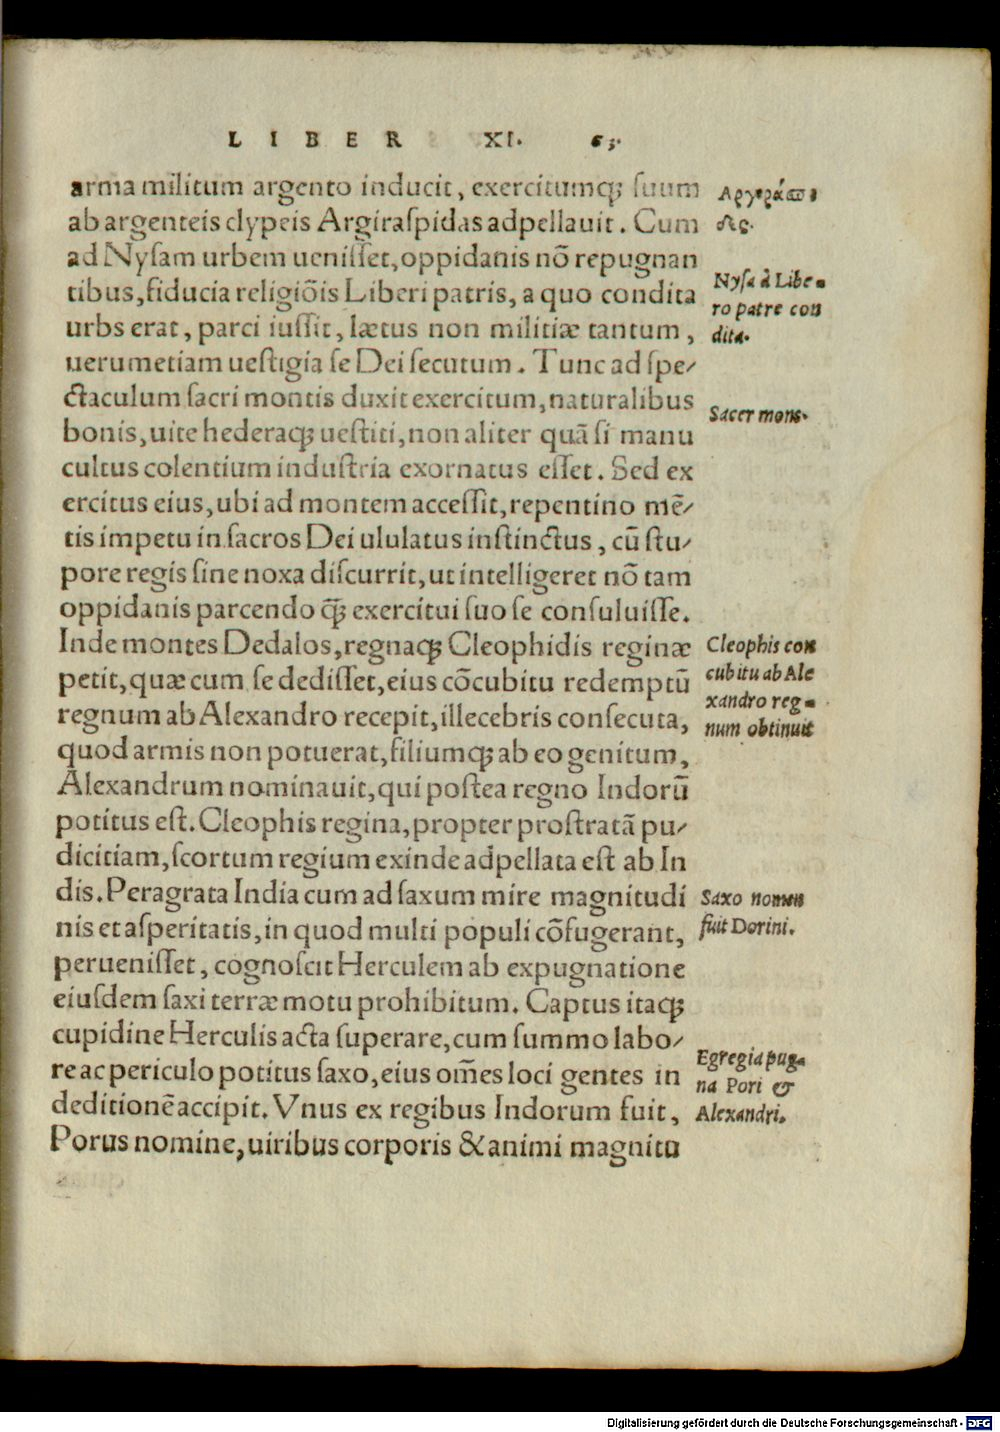 LIBER XI. 63.
arma militum argento inducit, exercitumq́; ſuum
ab argenteis clypeis Argiraſpidas adpellauit. Cum
ad Nyſam urbem ueniſſet, oppidanis nõ repugnan
tibus, fiducia religiõis Liberi patris, a quo condita
urbs erat, parci iuſſit, lætus non militiæ tantum,
uerumetiam ueſtigia ſe Dei ſecutum. Tunc ad ſpe⸗
ctaculum ſacri montis duxit exercitum, naturalibus
bonis, uite hederaq́; ueſtiti, non aliter quã ſi manu
cultus colentium induſtria exornatus eſſet. Sed ex
ercitus eius, ubi ad montem acceſſit, repentino mẽ⸗
tis impetu in ſacros Dei ululatus inſtinctus, cũ ſtu⸗
pore regis ſine noxa diſcurrit, ut intelligeret nõ tam
oppidanis parcendo q̃; exercitui ſuo ſe conſuluiſſe.
Inde montes Dedalos, regnaq́; Cleophidis reginæ
petit, quæ cum ſe dediſſet, eius cõcubitu redemptũ
regnum ab Alexandro recepit, illecebris conſecuta,
quod armis non potuerat, filiumq́; ab eo genitum,
Alexandrum nominauit, qui poſtea regno Indorũ
potitus eſt. Cleophis regina, propter proſtratã pu⸗
dicitiam, ſcortum regium exinde adpellata eſt ab In
dis. Peragrata India cum ad ſaxum mire magnitudi
nis et aſperitatis, in quod multi populi cõfugerant,
perueniſſet, cognoſcit Herculem ab expugnatione
eiuſdem ſaxi terræ motu prohibitum. Captus itaq́;
cupidine Herculis acta ſuperare, cum ſummo labo⸗
re ac periculo potitus ſaxo, eius om̃es loci gentes in
deditionẽ accipit. Vnus ex regibus Indorum fuit,
Porus nomine, uiribus corporis & animi magnitu
Nyſa à Libe⸗
ro patre con
dita.
Sacer mons.
Cleophis con
cubitu ab Ale
xandro reg⸗
num obtinuit
Saxo nomen
fuit Dorini.
Egregia pug⸗
na Pori &
Alexandri.
Digitalisierung gefördert durch die Deutsche Forschungsgemeinschaft - DFG